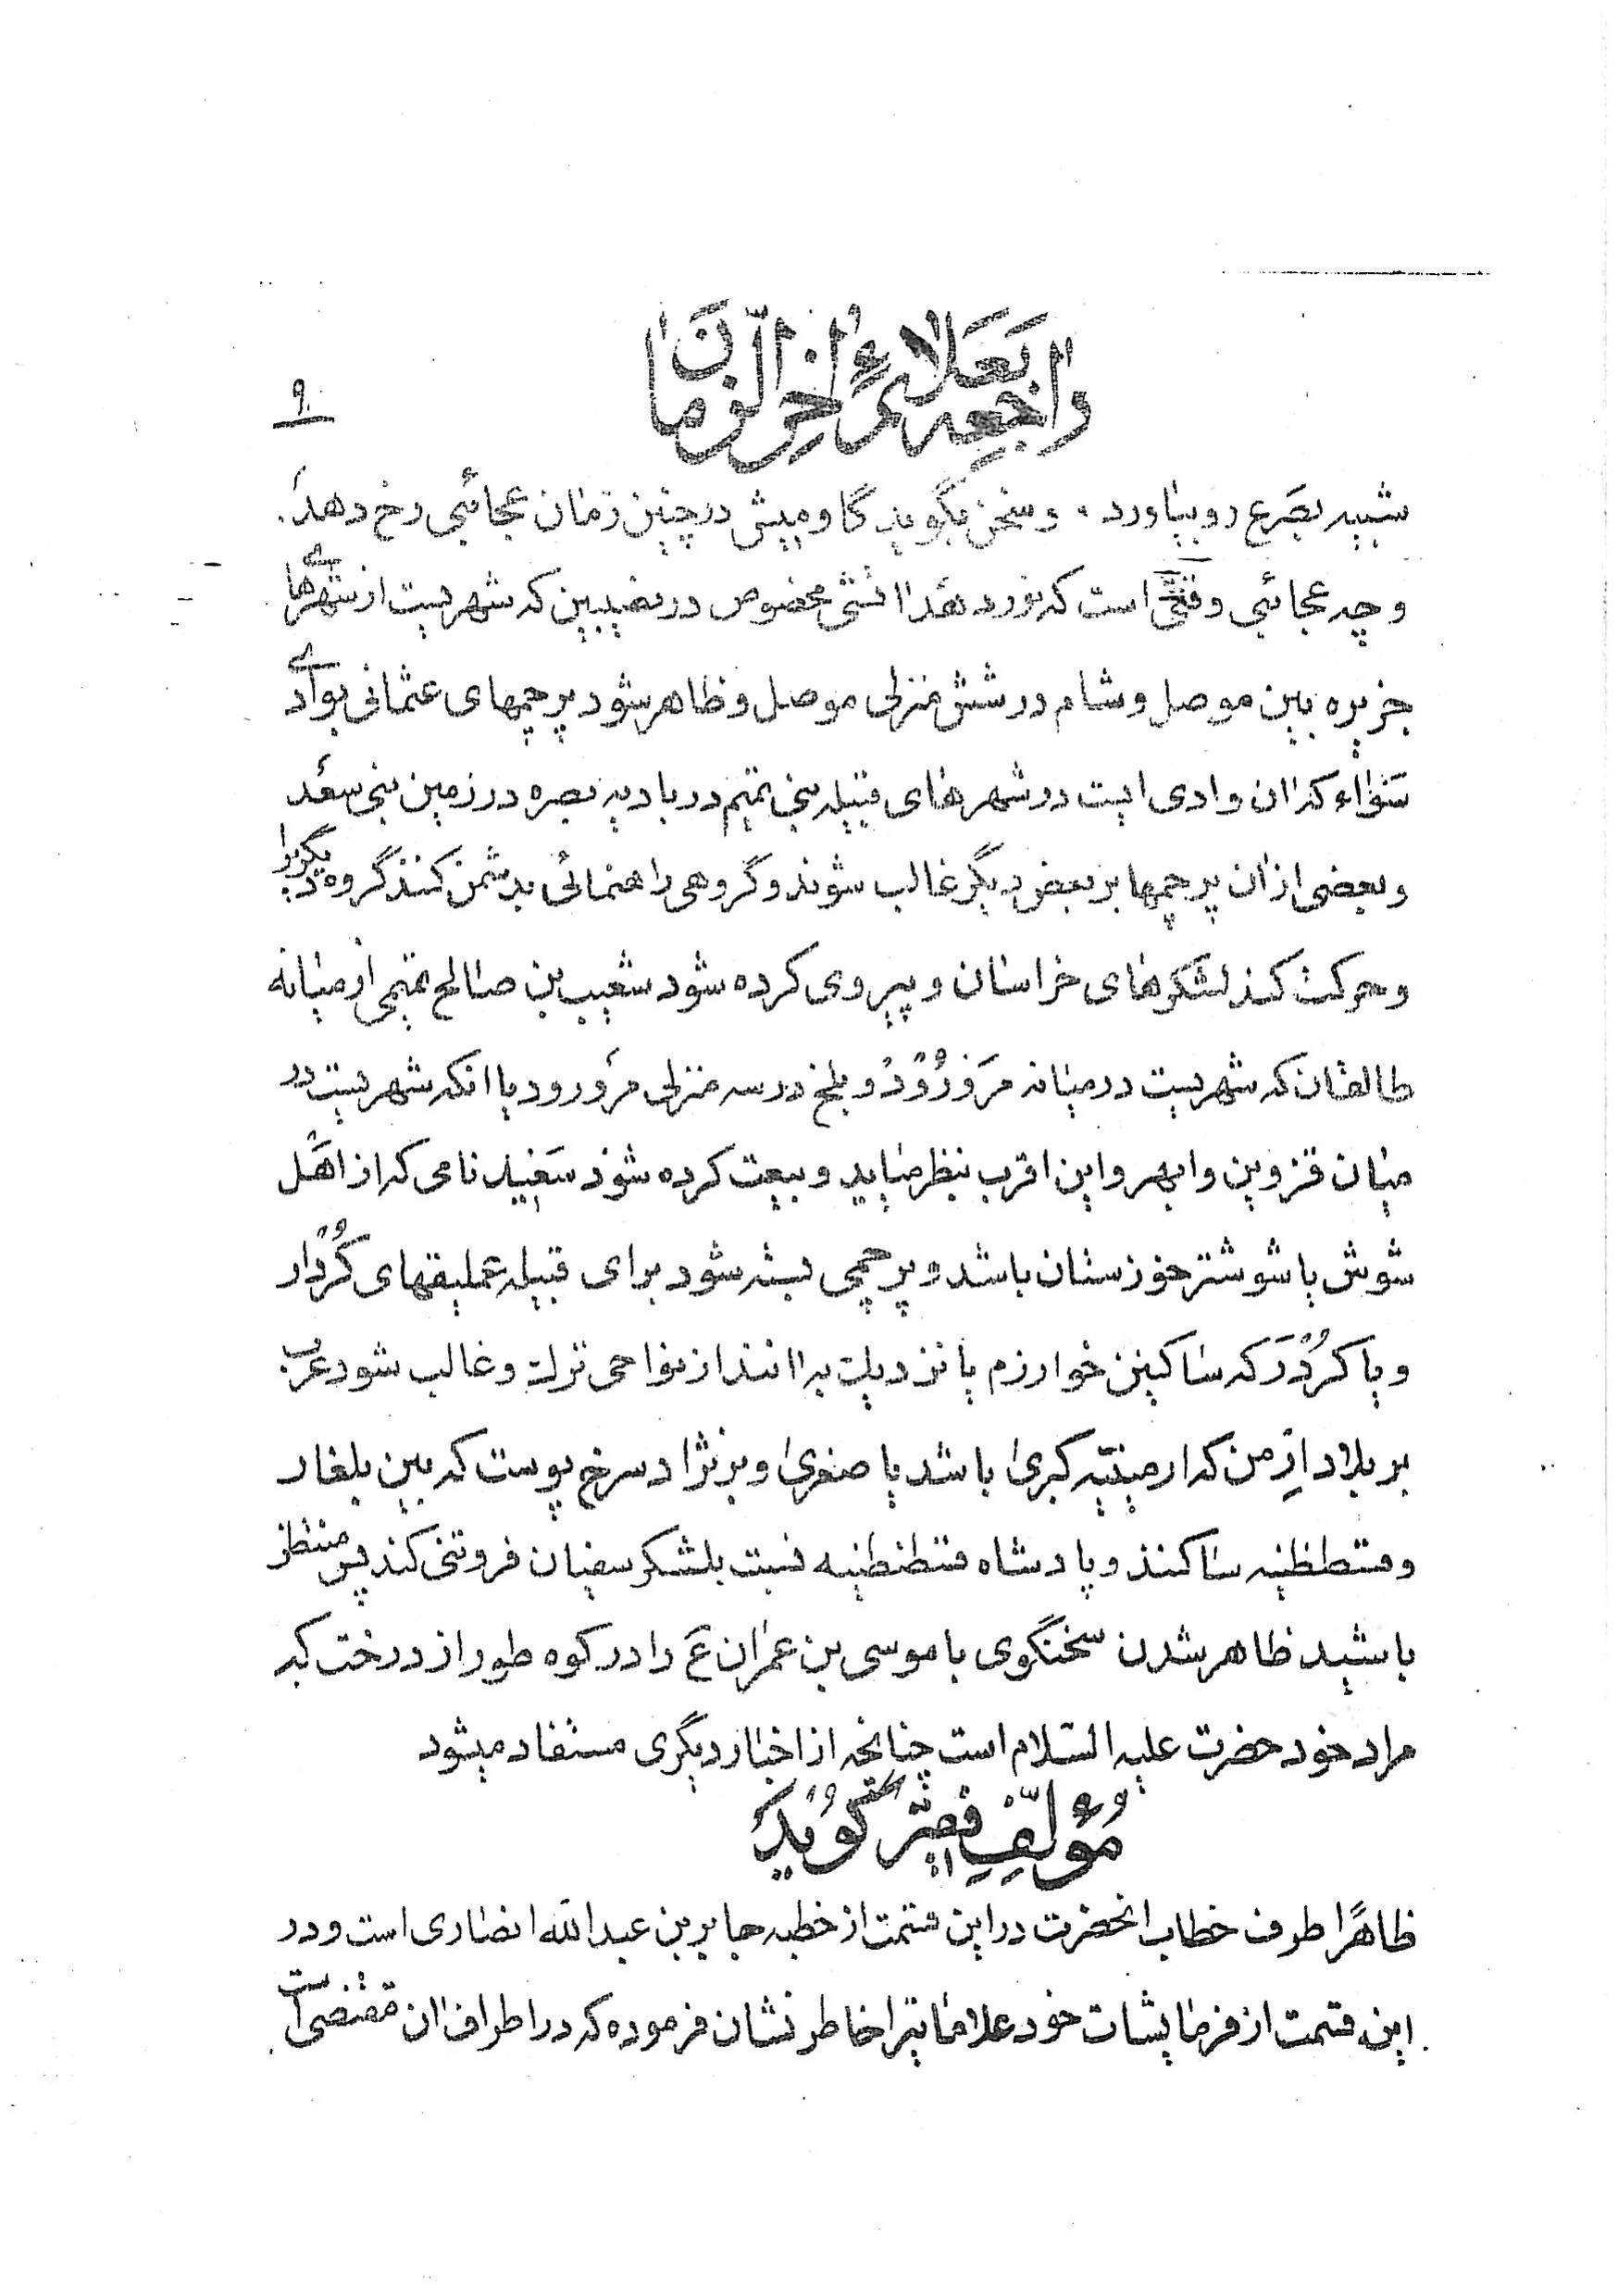 راجعه بعلائم اخر الزمان
۹
شبیه بصرع رو بیاورد . و سخن بگوید گاومیش در چنین زمان عجائبی رخ دهد .
و چه عجائبی وقتی است که نورد هد اتشی مخصوص در نصیبین که شهریست از شهرهای
جزیره بین موصل و شام در شش منزلی موصل و ظاهر شود پرچمهای عثمانی بوادی
سواء که ان وادی ایست در شهرهای قبیله بنی تمیم در بادیه بصره در زمین بنی سعد
و بعضی از ان پرچمها بر بعض دیگر غالب شوند و گروهی راهنمائی بدشمن کنند گروه دیگر را
و حرکت کند لشکرهای خراسان و پیروی کرده شود شعیب بن صالح تمیمی از میانه
طالقان که شهریست در میانه مَروَرُوُدْ و بلخ در سه منزلی مرَورود یا انکه شهریست در
میان قزوین و ابهر و این اقرب بنظر میاید و بیعت کرده شود سَعید نامی که از اهل
شوش یا شوشتر خوزستان باشد و پرچمی بسته شود برای قبیله عملیقهای کُردار
و یا کُردَر که ساکنین خوارزم یا نزدیك به انند از نواحی ترك و غالب شود عرب
بر بلاد ارِمن که ارمینیّه کبری باشد یا صغری و بر نژاد سرخ پوست که بین بلغار
و قسطنطنیه ساکنند و پادشاه قسطنطنیه نسبت بلشکر سفیان فروتنی کند پس منتظر
باشید ظاهر شدن سخنگوی با موسی بن عمران عَ را در کوه طور از درخت که
مراد خود حضرت علیه السّلام است چنانچه از اخبار دیگری مستفاد میشود
مُؤلّفِ فقیر گوُیدَ
ظاهرًا طرف خطاب انحضرت در این قسمت از خطبه جابر بن عبد الله انصاری است و در
این قسمت از فرمایشات خود علاماتیرا خاطر نشان فرموده که در اطراف ان مقتضی است